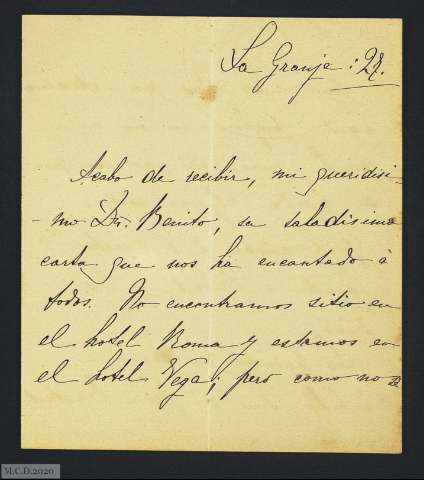 La Granja: 28.
Acabo de recibir, mi queridisi-
-mo Dn. Benito, su saladisima
carta que nos ha encantado á
todos. No encontramos sitio en
el hotel Roma y estamos en
el hotel Vega; pero como no se
M.C.D.2020